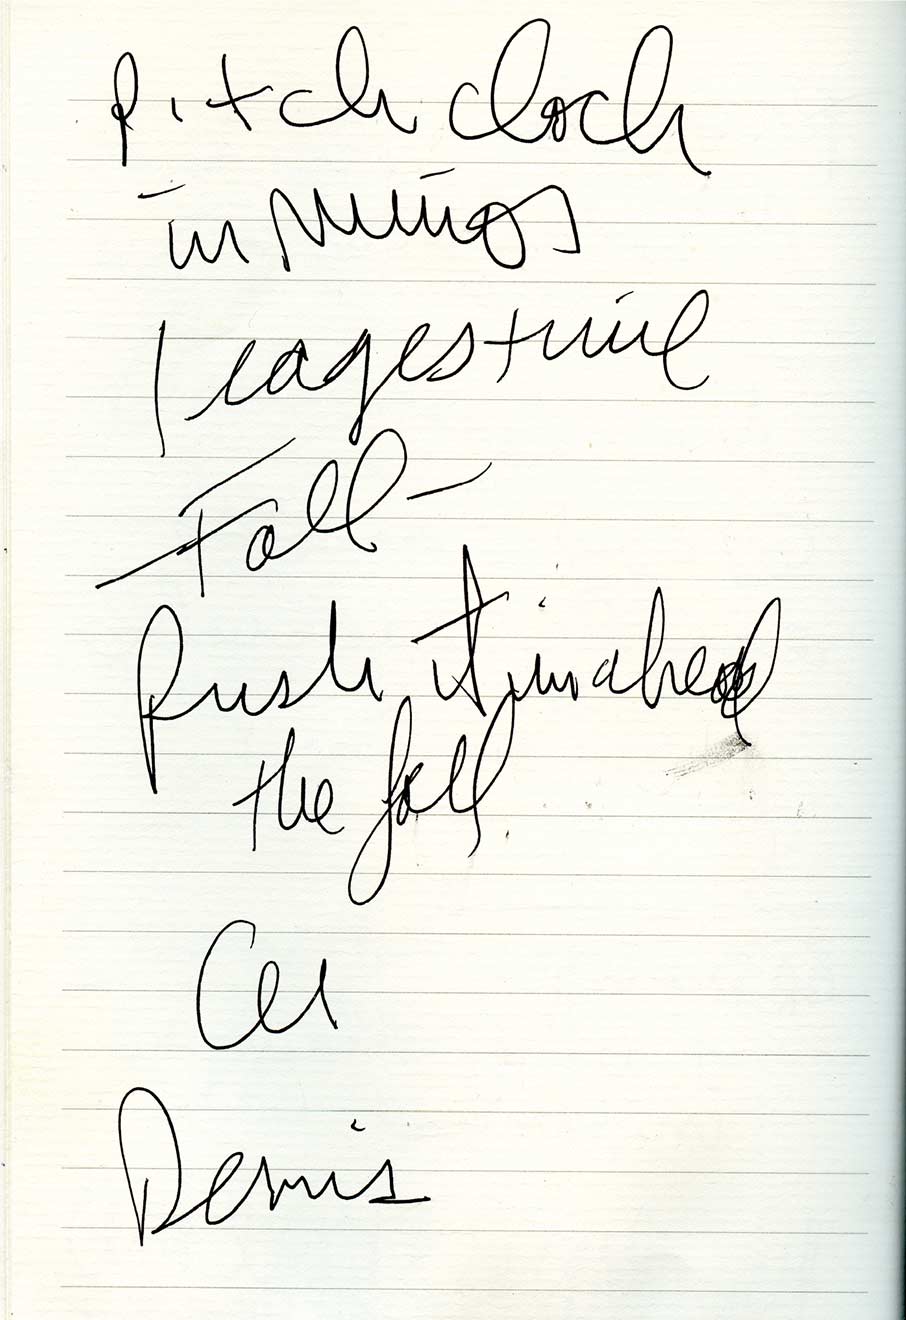 Pitch clock
in Minor
leagestime
Fall-
Push it in ahead
the fall
Denis